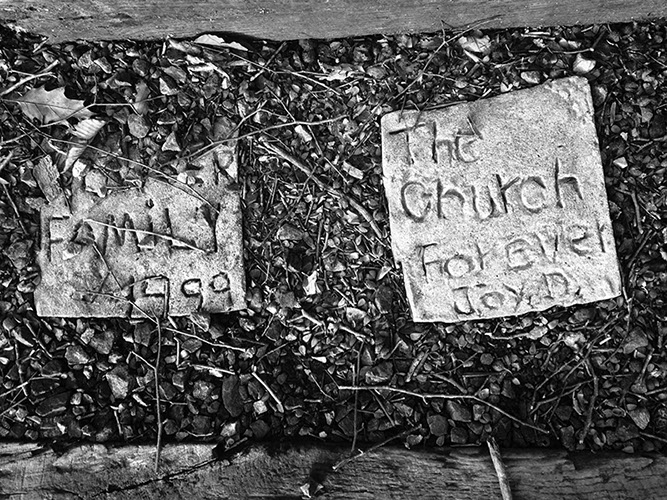 FAMiLY
1999
The
Church
Forever
Joy.D.